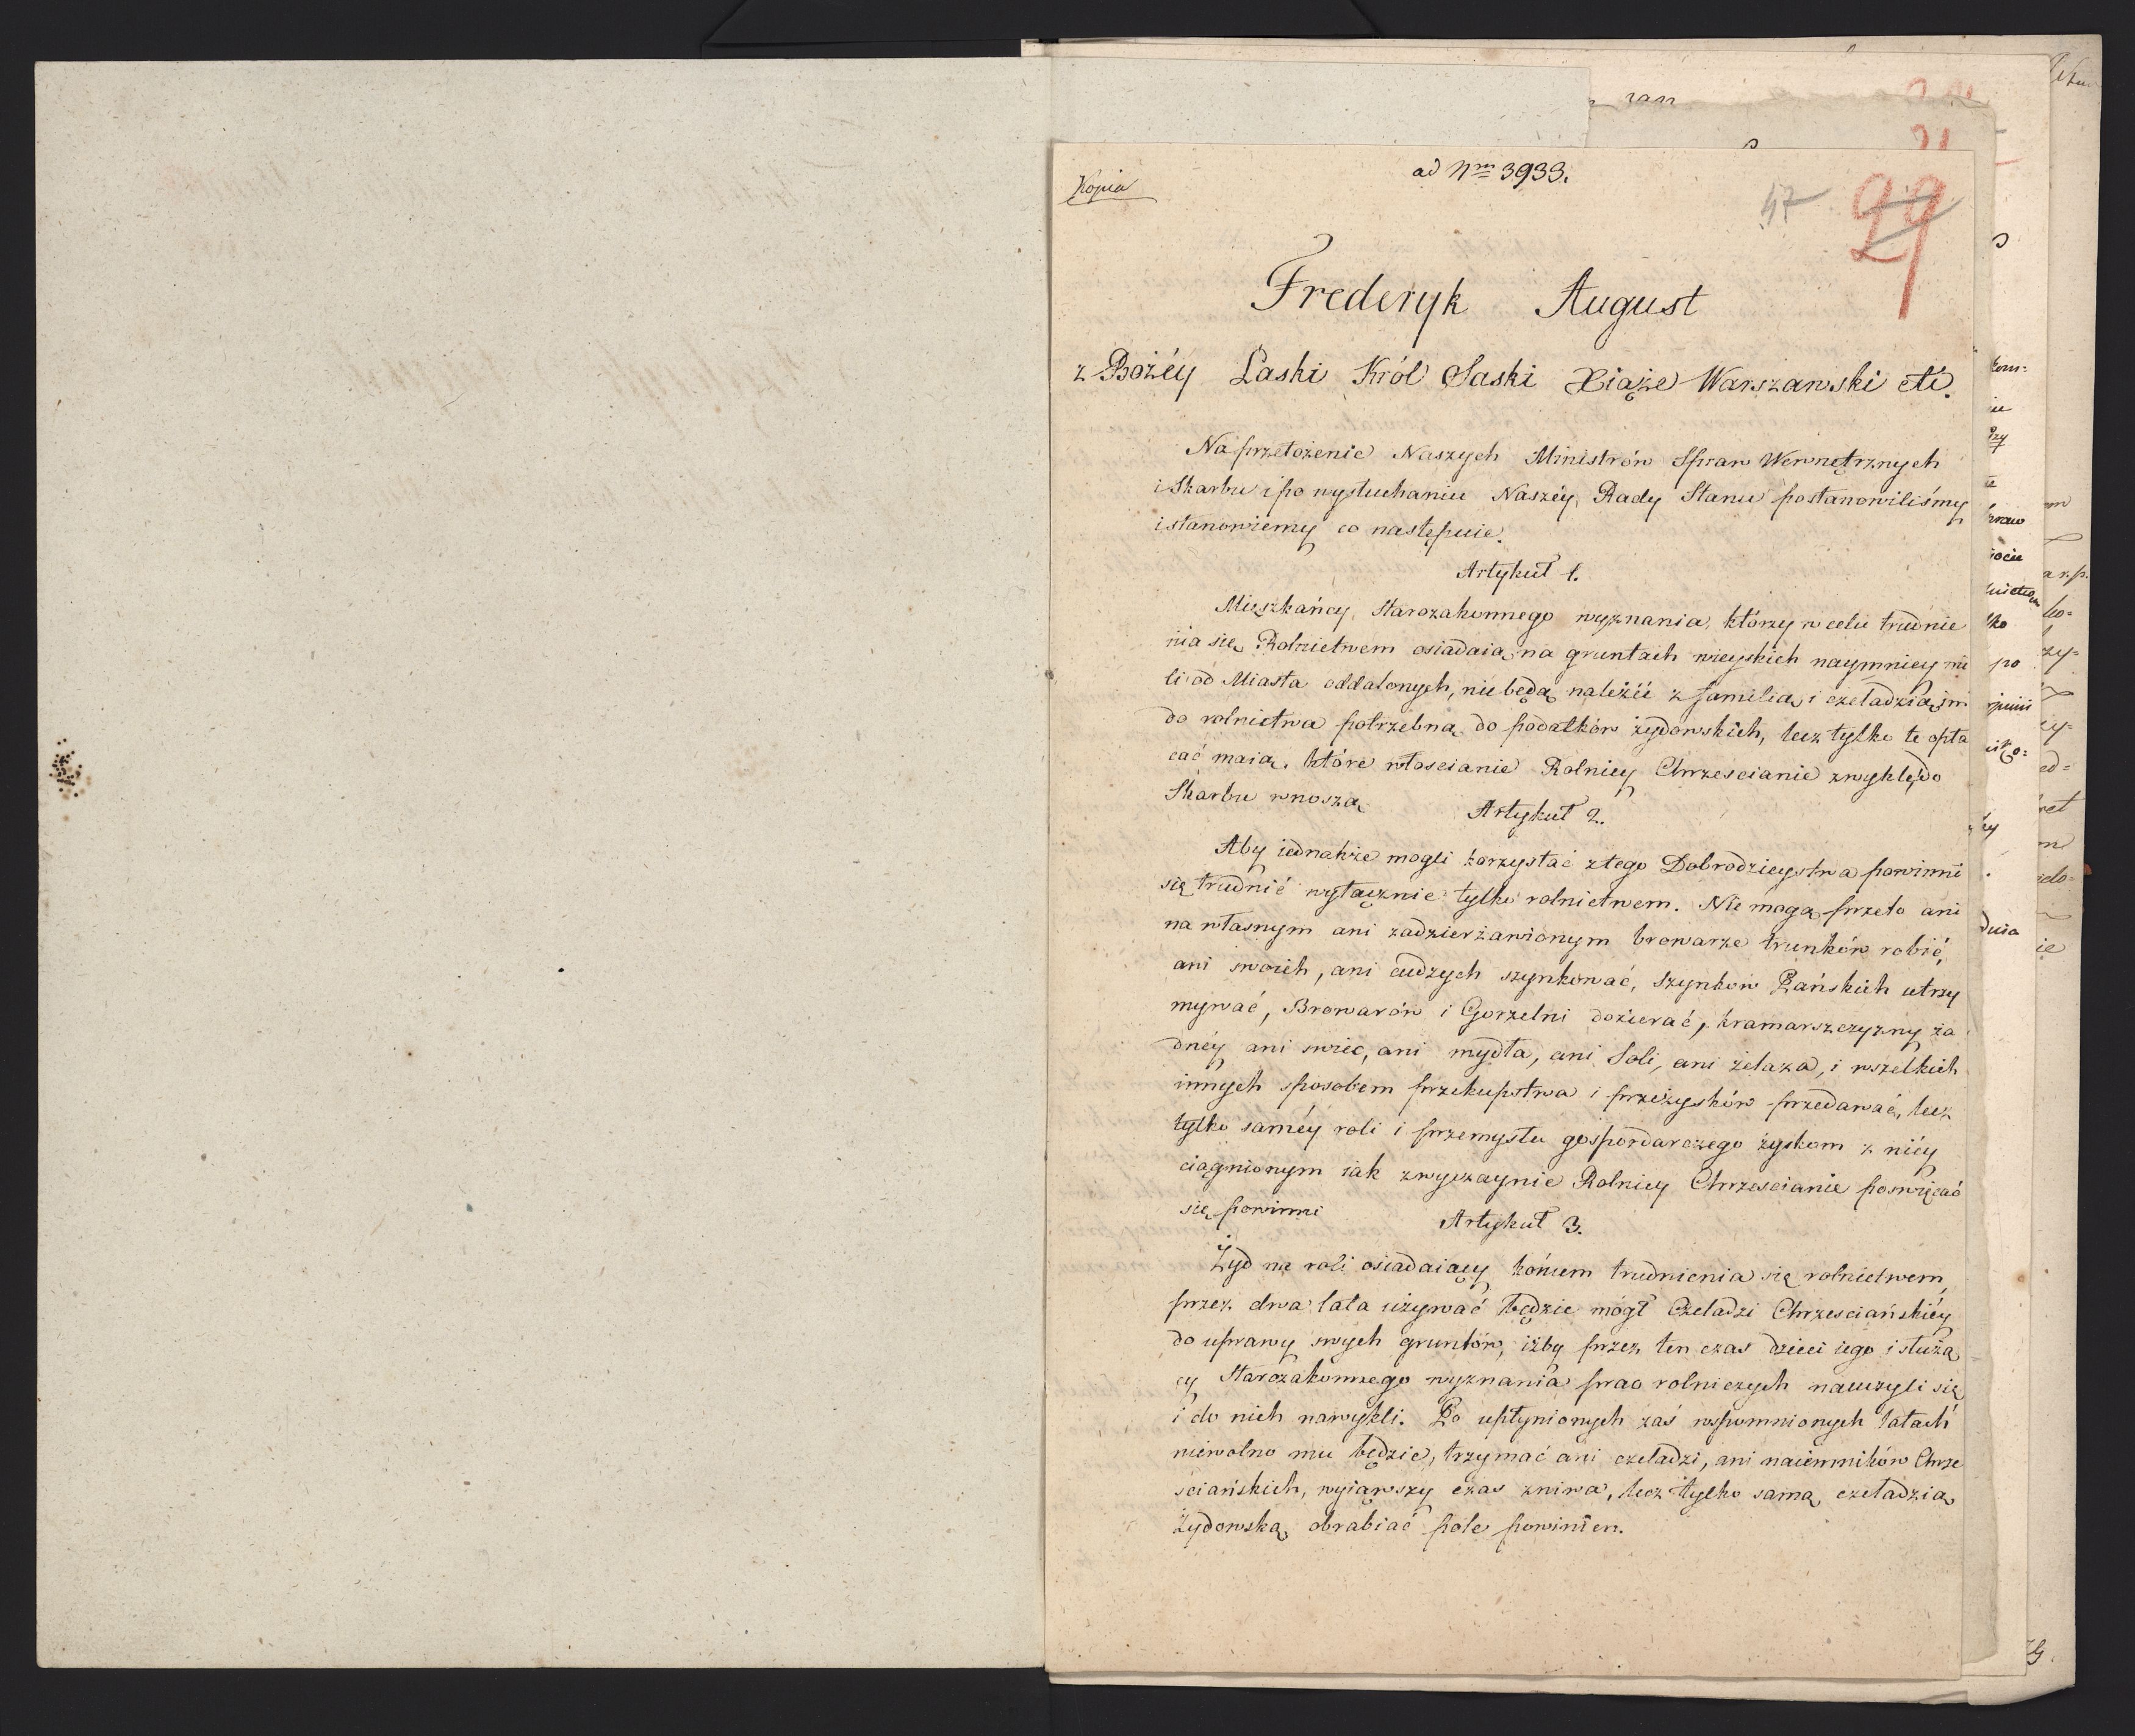 Kopia
ad Nm 3933.
47 29
Frederyk August
z Bożéy Łaski Król Saski Xiąże Warszawski etc.
Na przełożenie Naszych Ministrów Spraw Wewnętrznych
i Skarbu i po wysłuchaniu Naszéy Rady Stanu postanowiliśmy
i stanowiemy co następuie.
Artykuł 1.
Mieszkańcy Starozakonnego wyznania, którzy w celu trudnie
nia się Rolnictwem osiadaią na gruntach wieyskich naymniey mi
li od Miasta oddalonych, nie będą należéć z familią i czeladzią im
do rolnictwa potrzebną do podatków żydowskich, lecz tylko te opła
cać maią, które włoscianie Rolnicy Chrzescianie zwykle do
Skarbu wnoszą
Artykuł 2.
Aby iednakże mogli korzystać z tego Dobrodzieystwa powinni
się trudnić wyłącznie tylko rolnictwem. Nie mogą przeto ani
na własnym ani zadzierżawionym browarze trunków robić,
ani swoich, ani cudzych szynkować, szynkow Pańskich utrzy
mywać, Browarów i Gorzelni dozierać, kramarszczyzny ża
dnéy ani swiec, ani mydła, ani Soli, ani żelaza, i wszelkich
innych sposobem przekupstwa i przezysków przedawać, lecz
tylko saméy roli i przemysłu gospordarczego zyskom z niéy
ciągnionym iak zwyczaynie Rolnicy Chrzescianie poswięcać
się powinni
Artykuł 3.
Żyd na roli osiadaiący końcem trudnienia się rolnictwem
przez dwa lata używać będzie mógł Czeladzi Chrzesciańskiéy
do uprawy swych gruntów, iżby przez ten czas dzieci iego i służą
cy Starozakonnego wyznania prac rolniczych nauczyli się
i do nich nawykli. Po upłynionych zaś wspomnionych latach
niewolno mu będzie, trzymać ani czeladzi, ani naiemników Chrze
sciańskich, wyiąwszy czas zniwa, lecz tylko samą czeladzią
Żydowską obrabiać pole powinien.